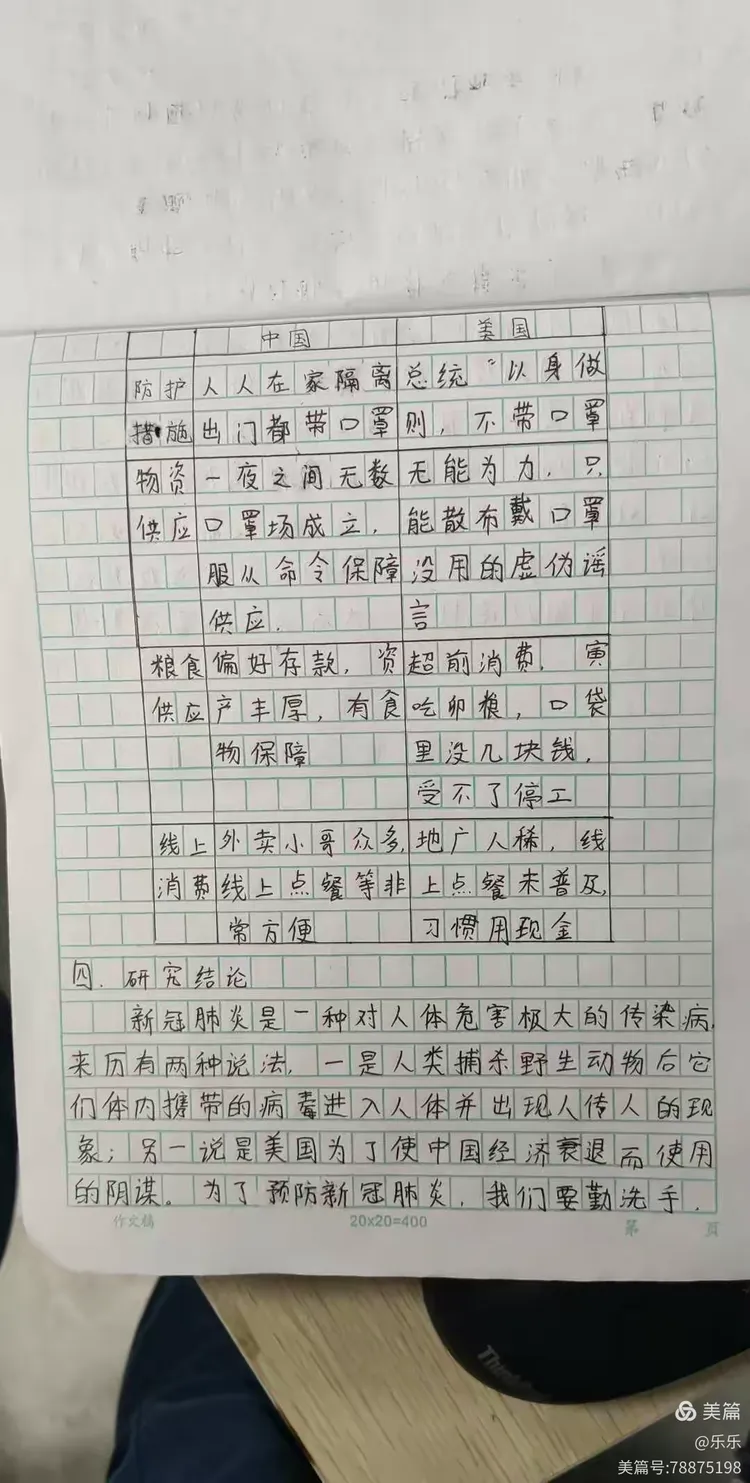 中国 美国
防护 人人在家隔离 总统“以身做
措施 出门都带口罩 则，不带口罩
物资 一夜之间无数 无能为力，只
供应 口罩场成立， 能散布戴口罩
服从命令保障 没用的虚伪谣
供应． 言
粮食 偏好存款，资 超前消费，寅
供应 产丰厚，有食 吃卯粮，口袋
物保障 里没几块钱，
受不了停工
线上 外卖小哥众多， 地广人稀，线
消费 线上点餐等非 上点餐未普及，
常方便 习惯用现金
四．研究结论
新冠肺炎是一种对人体危害极大的传染病，
来历有两种说法，一是人类捕杀野生动物后它
们体内携带的病毒进入人体并出现人传人的现
象；另一说是美国为了使中国经济衰退而使用
的阴谋。为了预防新冠肺炎，我们要勤洗手，
作文稿 20x20=400 第 页
美篇
@乐乐
美篇号:78875198